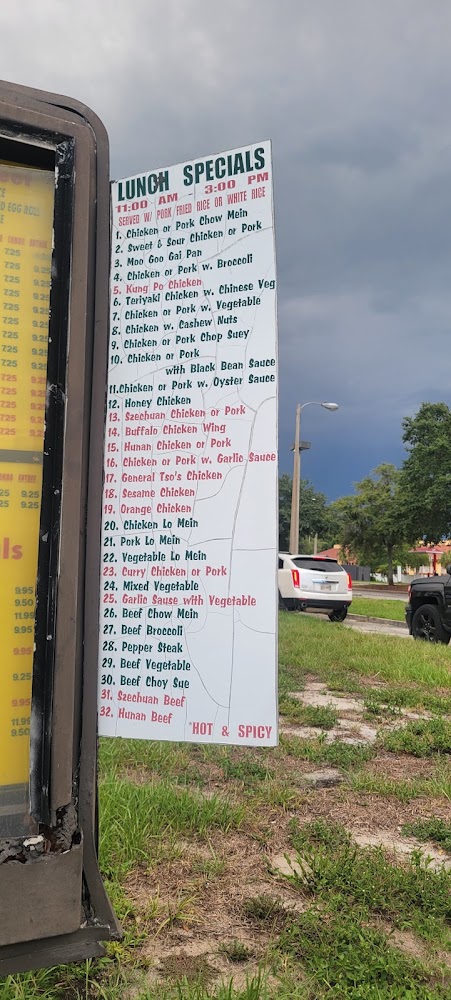 LUNCH SPECIALS
11:00 AM - 3:00 PM
SERVED W/ PORK FRIED RICE OR WHITE RICE
1. Chicken or Pork Chow Mein
2. Sweet & Sour Chicken or Pork
3. Moo Goo Gai Pan
4. Chicken or Pork w. Broccoli
5. Kung Po Chicken
6. Teriyaki Chicken w. Chinese Veg
7. Chicken or Pork w. Vegetable
8. Chicken w. Cashew Nuts
9. Chicken or Pork Chop Suey
10. Chicken or Pork
with Black Bean Sauce
11.Chicken or Pork w. Oyster Sauce
12. Honey Chicken
13. Szechuan Chicken or Pork
14. Buffalo Chicken Wing
15. Hunan Chicken or Pork
16. Chicken or Pork w. Garlic Sauce
17. General Tso's Chicken
18. Sesame Chicken
19. Orange Chicken
20. Chicken Lo Mein
21. Pork Lo Mein
22. Vegetable Lo Mein
23. Curry Chicken or Pork
24. Mixed Vegetable
25. Garlic Sause with Vegetable
26. Beef Chow Mein
27. Beef Broccoli
28. Pepper Steak
29. Beef Vegetable
30. Beef Choy Sue
31. Szechuan Beef
32. Hunan Beef
*HOT & SPICY
D EGG ROLLS
7.25 9.25
7.25
7.25
7.25
7.25
7.25
7.25
7.25
9.25 9.25
9.95
9.50
11.99
9.95
9.95
9.25
9.95
11.99
9.50